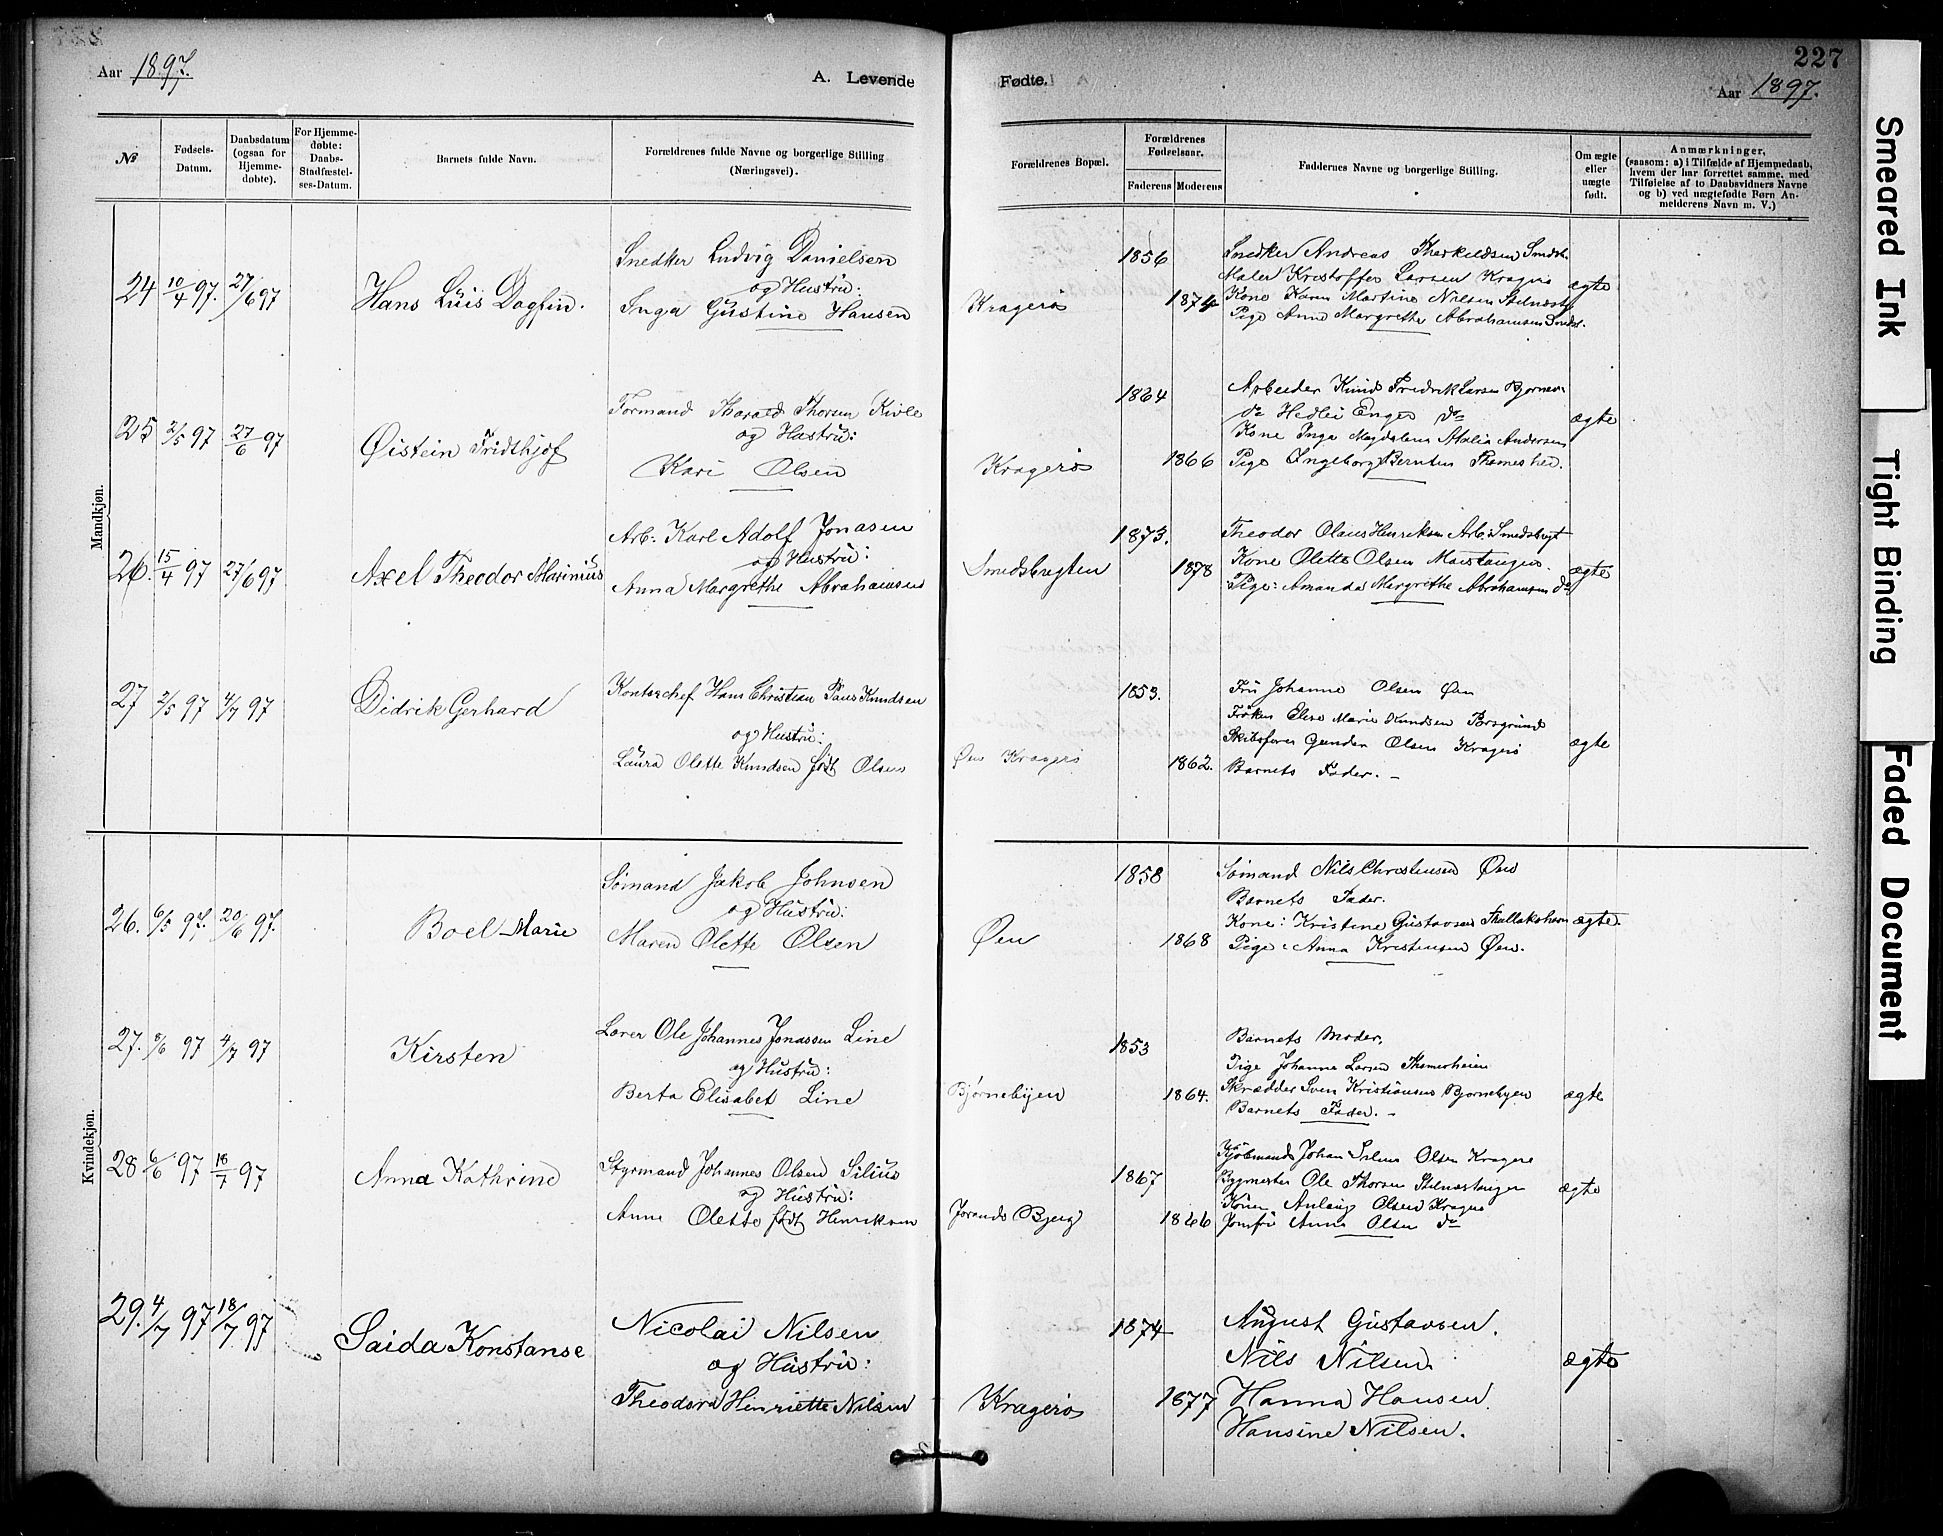 227
Aar 1897.
A. Levende Fødte.
Aar 1897.
№
Fødsels-Datum.
Daabsdatum (ogsaa for Hjemme-døbte).
For Hjemme-døbte: Daabs-Stadfæstel-ses-Datum.
Barnets fulde Navn.
Forældrenes fulde Navne og borgerlige Stilling (Næringsvei).
Forældrenes Bopæl.
Forældrenes Fødselsaar.
Faderens
Moderens
Faddernes Navne og borgerlige Stilling.
Om ægte eller uægte født.
Anmærkninger,
(saasom: a) i Tilfælde af Hjemmedaab, hvem der har forrettet samme, med Tilføielse af to Daabsvidners Navne og b) ved uægtefødte Børn An-melderens Navn m. V.)
Mandkjøn.
24 10/4 97. 27/6 97
Hans Luis Dagfin.
Snedker Ludvig Danielsen
og Hustru:
Inga Gustine Hansen
Kragerø
1856
1874
Snedker Andreas Therkeldsen
Maler Kristoffer Larsen Kragerø
Kone Karen Martine Nilsen
Pige Anne Margrethe Abrahamsen
ægte
25 2/5 97 27/6 97
Øistein Fridthjof
Formand Harald Thorsen Kivle
og Hustru:
Kari Olsen
Kragerø
1864
1866
Arbeider Knud Fredrik Larsen
do Enger do
Kone Inga Magdalena Andersen
Pige Ingeborg Berntsen
ægte
26. 15/4 97 27/6 97
Axel Theodor Marinius
Arb: Karl Adolf Jonasen
og Hustru:
Anna Margrethe Abrahamsen
Smedsbugten
1873.
1878
Theodor Olaus Henriksen Arb: Smedsbugt
Kone Olette Olsen
Pige: Amanda Margrethe Abrahamsen do
ægte
27 2/5 97 4/7 97
Didrik Gerhard
Kontorchef Hans Christian Paus Knudsen
og Hustru:
Laura Olette Knudsen født Olsen
Øen Kragerø
1853.
1862.
Fru Johanne Olsen Øen
Frøken Elise Marie Knudsen Porsgrund
Skibsfører Gunder Olsen Kragerø
Barnets Fader. –
ægte
Kvindekjøn.
26. 6/5 97. 20/6 97.
Boel Marie
Sømand Jakob Johnsen
og Hustru:
Maren Olette Olsen
Øen
1858
1868
Sømand Nils Christensen Øen
Barnets Fader.
Kone: Kristine Gustavsen
Pige: Anna Kristensen Øen.
ægte.
27. 8/6 97 4/7 97
Kirsten
Lærer Ole Johannes Jonassen Line
og Hustru:
Berta Elisabet Line
Bjørnebyen
1853
1864.
Barnets Moder.
Pige Johanna Larsen
Skrædder Sven Kristiansen Bjørnebyen
Barnets Fader. –
ægte
28 6/6 97 18/7 97
Anna Kathrine
Styrmand Johannes Olsen Silius
og Hustru:
Anne Olette født Henriksen
Bjerg
1867
1866
Kjøbmand Johan Olsen Kragerø
Bygmester Ole Thorsen
Olsen Kragerø
Jomfru Anna Olsen do
ægte
29. 4/7 97 18/7 97
Saida Konstanse
Nicolai Nilsen
og Hustru:
Theodora Henriette Nilsen
Kragerø
1874
1877
August Gustavsen.
Nils Nilsen.
Hanna Hansen.
Hansine Nilsen.
ægte
Smeared Ink
Tight Binding
Faded Document